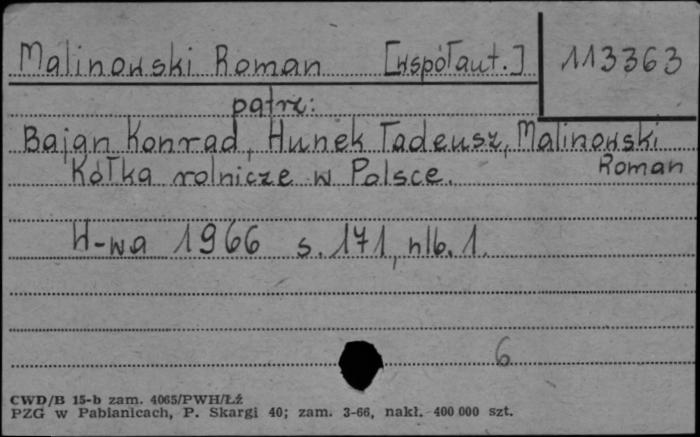 Malinowski Roman [współaut.] 113363
patrz:
Bajan Konrad, Hunek Tadeusz, Malinowski
Kółka rolnicze w Polsce. Roman
W-wa 1966 s. 171, nlb. 1.
6
CWD/B 15-b zam. 4065/PWH/Łź
PZG w Pabianicach, P. Skargi 40; zam. 3-66, nakł. 400 000 szt.